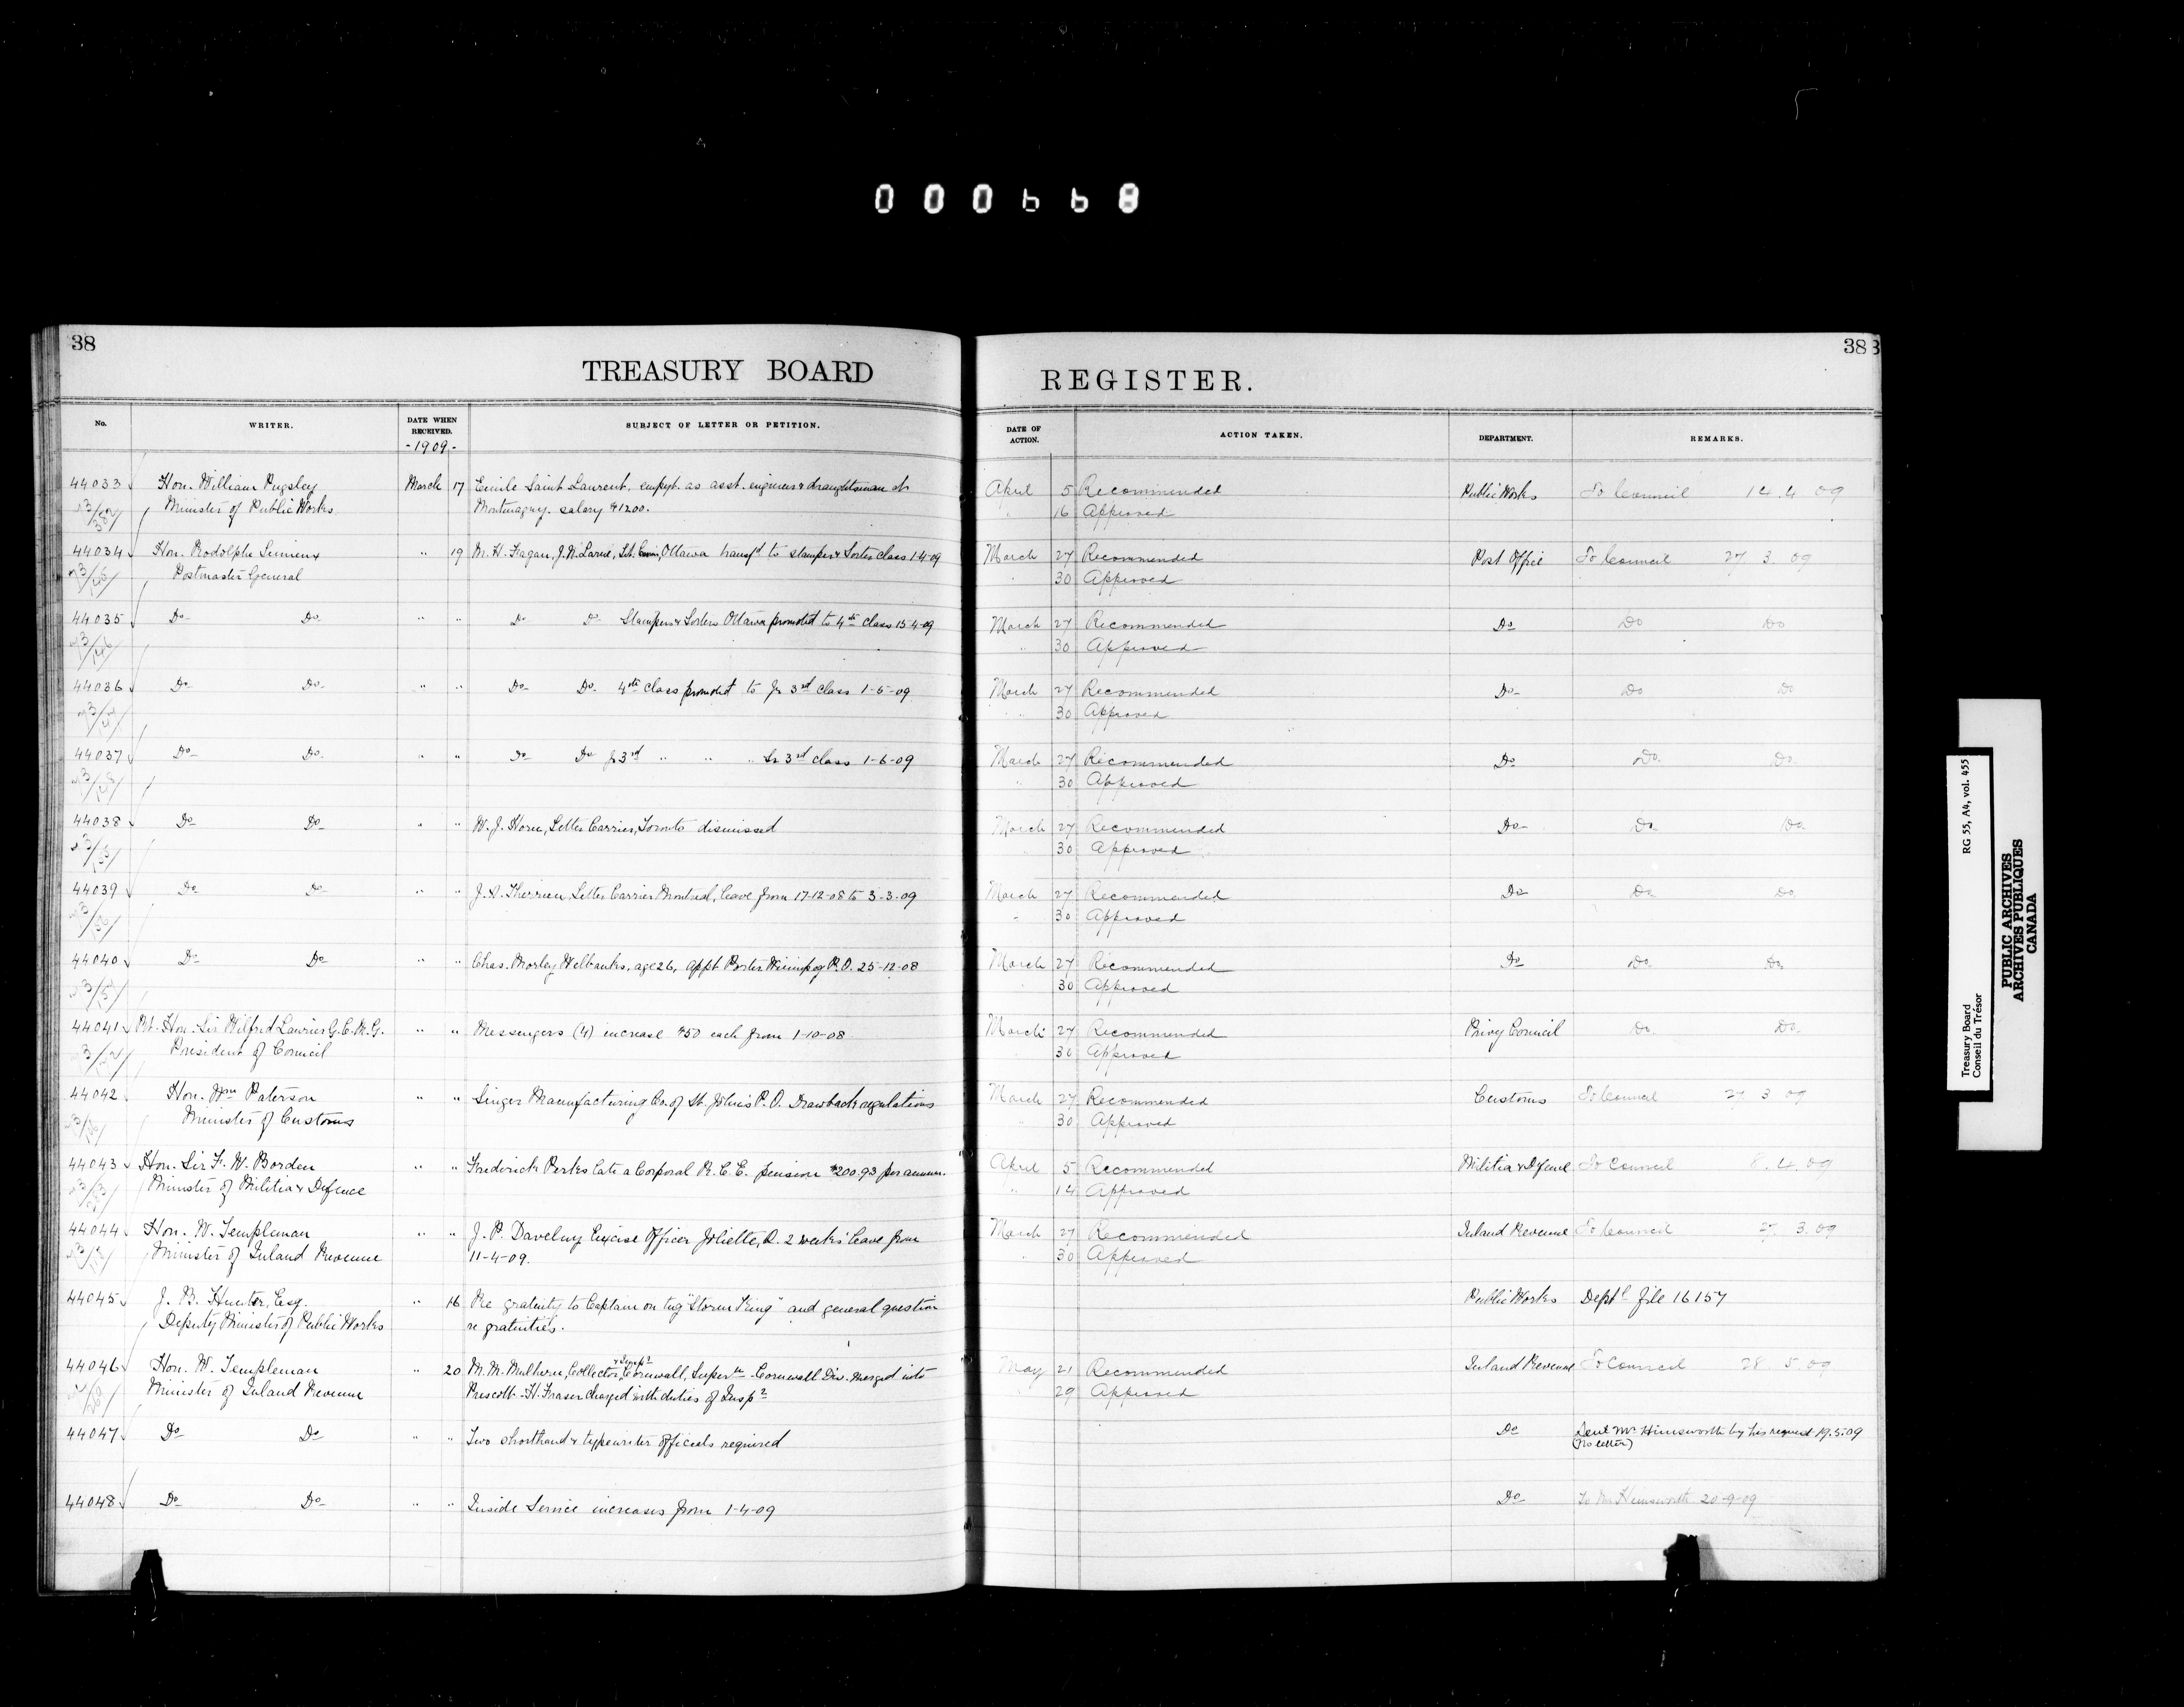 000668
38
TREASURY BOARD
No.
WRITER.
DATE WHEN RECEIVED.
-1909-
SUBJECT OF LETTER OR PETITION.
44033 Hon. William Pugsley March 17 Emile Saint Laurent. empyt. as asst. engineer & draughtsman at
Minister of Public Works Montmagny. salary $1200.
44034 Hon. Rodolphe Lemieux " 19 M. H. Fagan, J.N. Larue, Ottawa transfd to stamper & Sorter class 1-4-09
Postmaster General
44035 Do Do " " Do Do Stampers & Sorters Ottawa promoted to 4th class 15-4-09
44036 Do Do " " Do Do 4th class promoted to Jr 3rd class 1-5-09
44037 Do Do " " Do Do Jr 3rd " " " Sr 3rd class 1-6-09
44038 Do Do " " W. J. Horn, Letter Carrier, Toronto dismissed
44039 Do Do " " J. A. Therrien, Letter Carrier Montreal, leave from 17-12-08 to 3-3-09
44040 Do Do " " Chas. Morley Welbanks, age 26, appt Porter Winnipeg P.O. 25-12-08
44041 Rt. Hon. Sir Wilfred Laurier G.C.M.G. " " Messengers (4) increase $50 each from 1-10-08
President of Council
44042 Hon. Wm Paterson " " Singer Manufacturing Co. of St. John's P.Q. Drawback regulations
Minister of Customs
44043 Hon. Sir F. W. Borden " " Frederick Perks late a Corporal R.C.E. pension $200.93 per annum.
Minister of Militia & Defence
44044 Hon. W. Templeman " " J. P. Daveluy Excise Officer Joliette, Q. 2 weeks' leave from
Minister of Inland Revenue 11-4-09.
44045 J. B. Hunter, Esq. " 16 Re gratuity to Captain on tug "Storm King" and general question
Deputy Minister of Public Works re gratuities.
44046 Hon. W. Templeman " 20 M. M. Mulhern, Collector & Inspr Cornwall, Super - Cornwall Div. merged into
Minister of Inland Revenue Prescott - H. Fraser charged with duties of Inspr
44047 Do Do " " Two shorthand & typewriter officials required
44048 Do Do " " Inside Service increases from 1-4-09
38
REGISTER.
DATE OF ACTION.
ACTION TAKEN.
DEPARTMENT.
REMARKS.
April 5 Recommended Public Works To Council 14.4 09
" 16 Approved
March 27 Recommended Post Office To Council 27 3 09
30 Approved
March 27 Recommended Do Do Do
" 30 Approved
March 27 Recommended Do Do Do
" 30 Approved
March 27 Recommended Do Do Do
" 30 Approved
March 27 Recommended Do Do Do
30 Approved
March 27 Recommended Do Do Do
" 30 Approved
March 27 Recommended Do Do Do
30 Approved
March 27 Recommended Privy Council Do Do
30 Approved
March 27 Recommended Customs To Council 27 3 09
30 Approved
April 5 Recommended Militia & Defence To Council 8.4.09
" 14 Approved
March 27 Recommended Inland Revenue To Council 27 3.09
30 Approved
Public Works Deptl file 16157
May 21 Recommended Inland Revenue To Council 28 5 09
29 Approved
Do Sent Mr Himsworth by his request 19.5.09
(No letter)
Do To Mr Himsworth 20-9-09
Treasury Board
Conseil du Trésor
RG 55, A4, vol. 455
PUBLIC ARCHIVES
ARCHIVES PUBLIQUES
CANADA